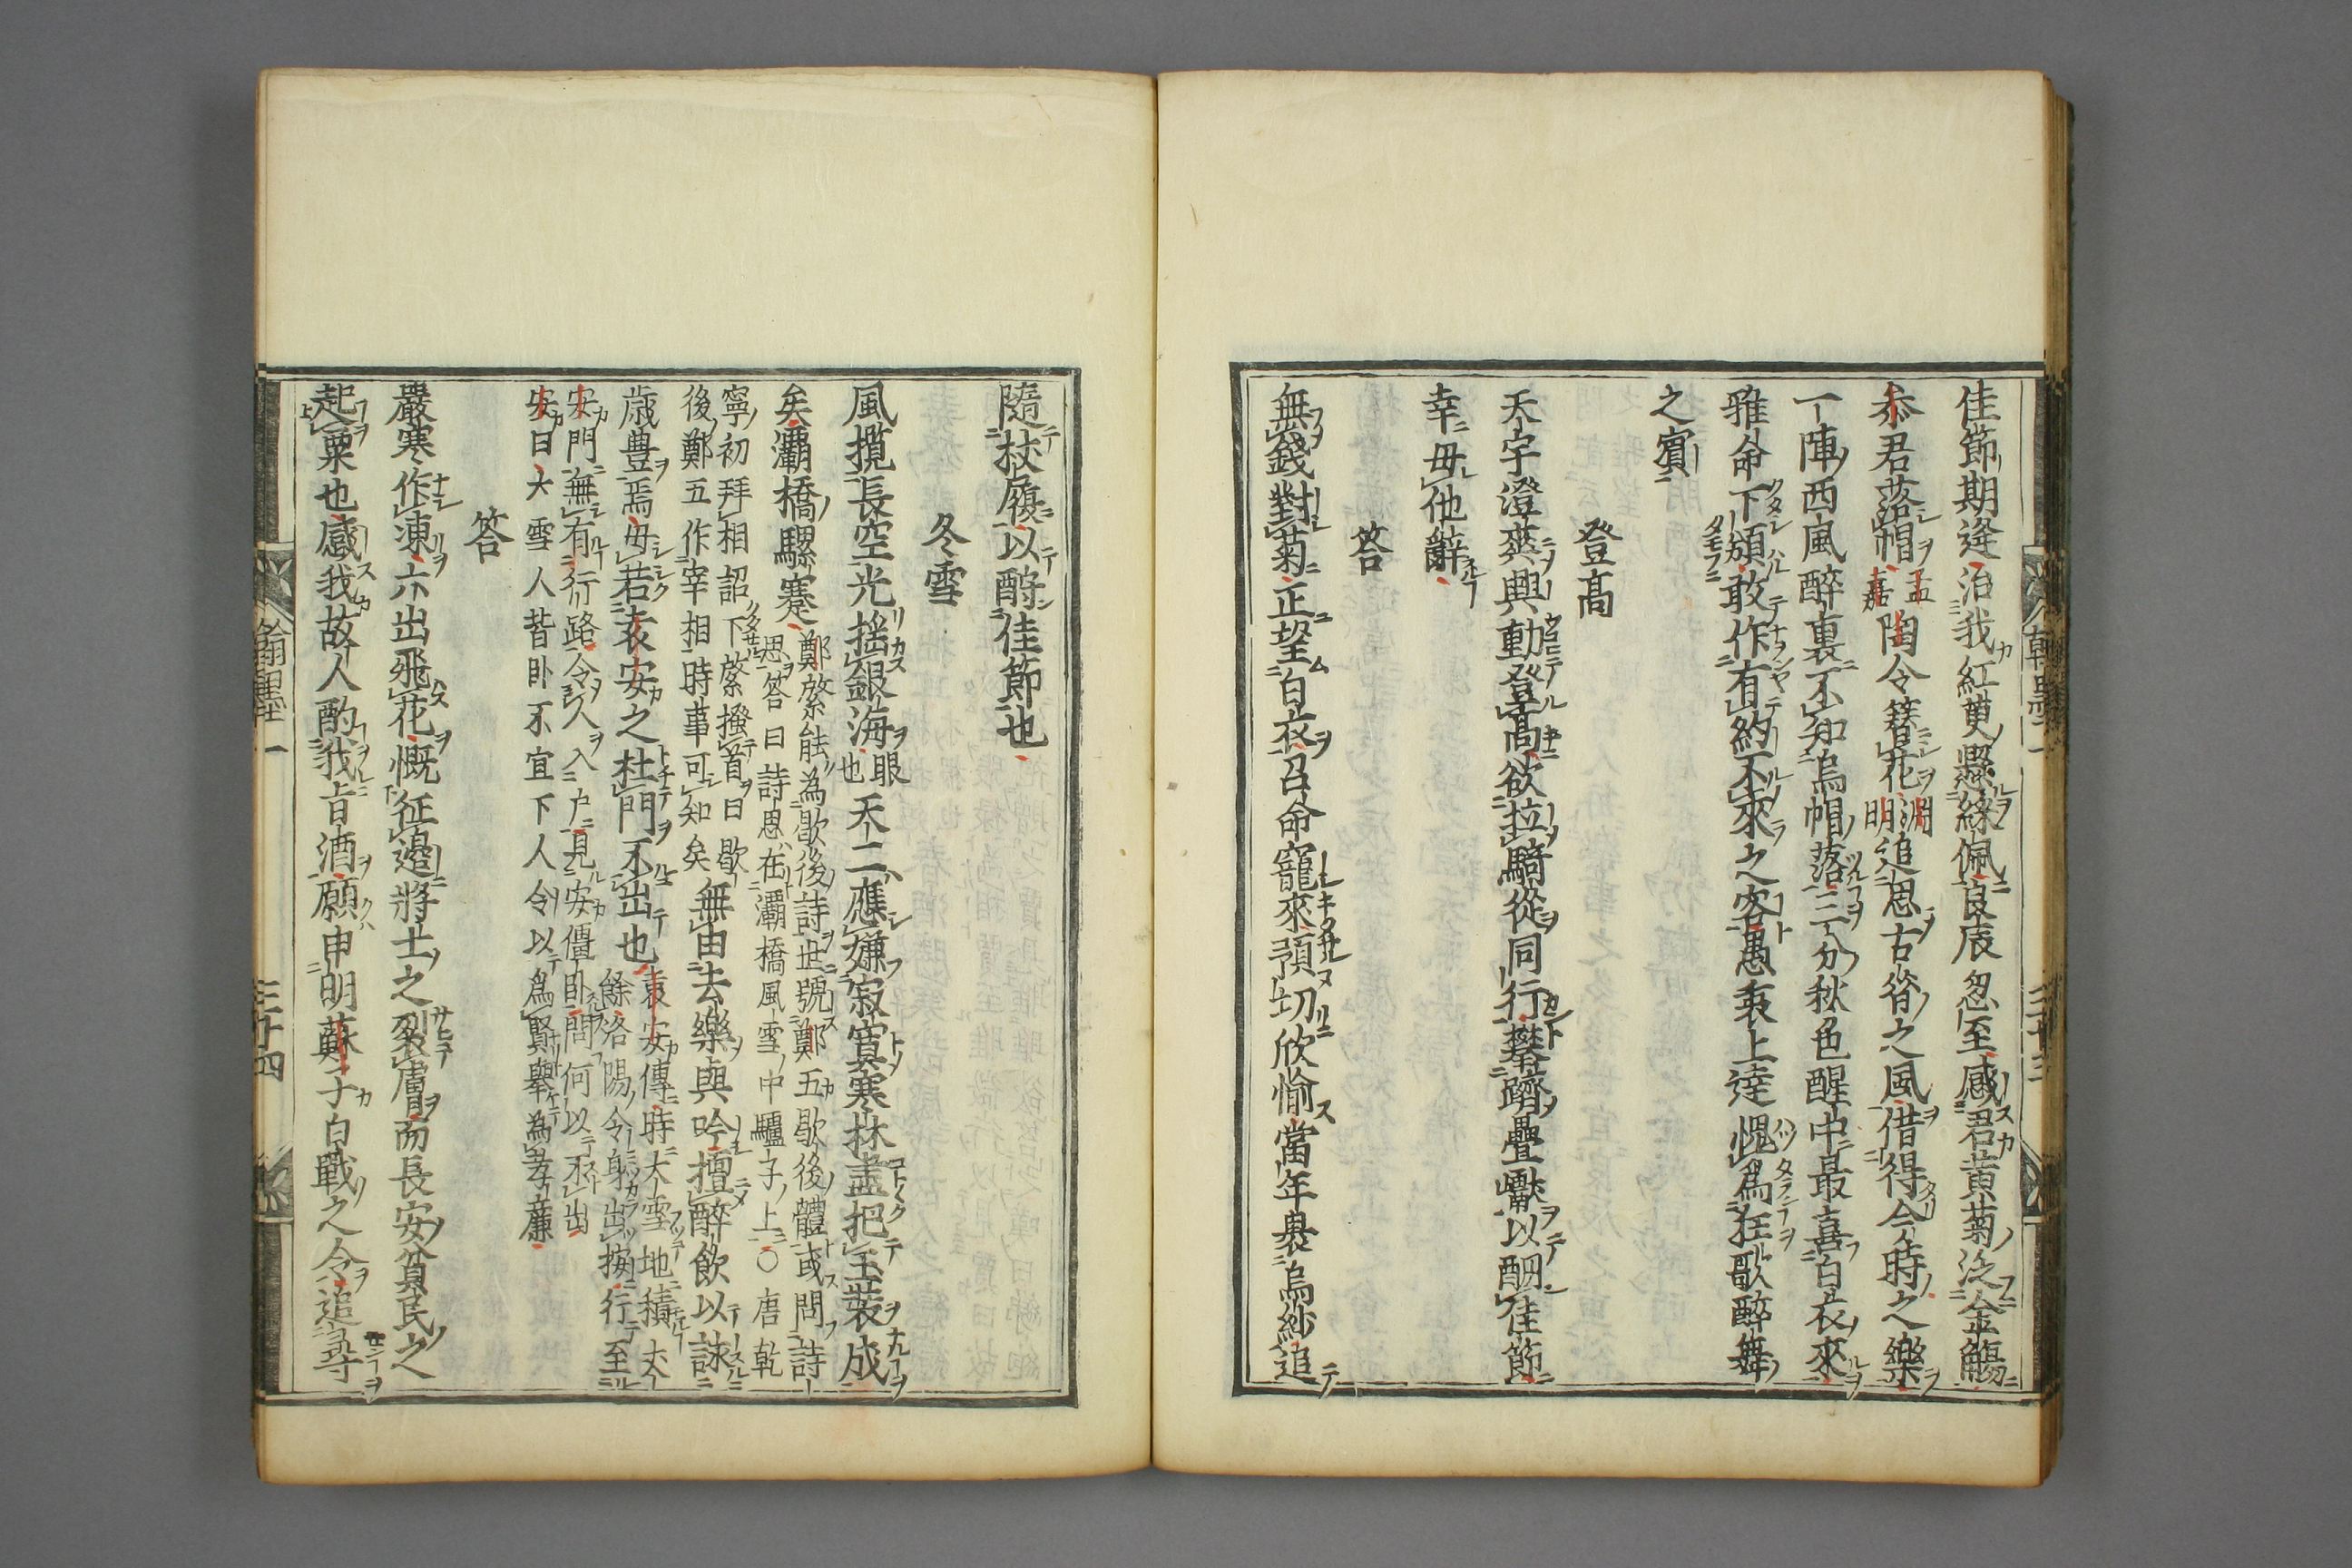 佳節期逄治我紅萸懸絲佩良辰忽至感君黄菊泛金觴
忝君落帽孟嘉陶令簪花淵明追思古眷之風借得今時之樂
一陣西風醉裏不知烏帽落三分秋色醒中最喜白衣來
雅命下頒敢作有約不來之客愚衷上逹愧爲狂歌醉舞
之賓
登高
天宇澄爽興動登高欲拉騎從同行攀躋疊巘以酬佳節
幸毋他辭
答
無錢對菊正望白衣召命寵來預切欣愉當年裊烏紗追
隨杖履以酧佳節也
冬雪
風攪長空光揺銀海眼也天二應嫌寂寞寒林盡把玉裝成
矣灞橋騾蹇鄭綮能為歇後詩世號鄭五歇後體或問詩
思答曰詩思在灞橋風雪中驢子上〇唐乾
寧初拜相詔下綮搔首曰歇
後鄭五作宰相時事可知矣無由去樂與吟擅醉飲以詠
歳豊焉毋若袁安之杜門不出也袁安傳時大雪地積丈
餘洛陽令身出按行至
安門無有行路令人入户見安僵卧問何以不出
安曰大雪人皆卧不宜下人令以爲賢舉為孝廉
答
嚴寒作凍六出飛花慨征邉將士之裂膚而長安貧民之
起粟也感我故人酌我旨酒願申明蘇子白戰之令追尋
翰墨一
三十四